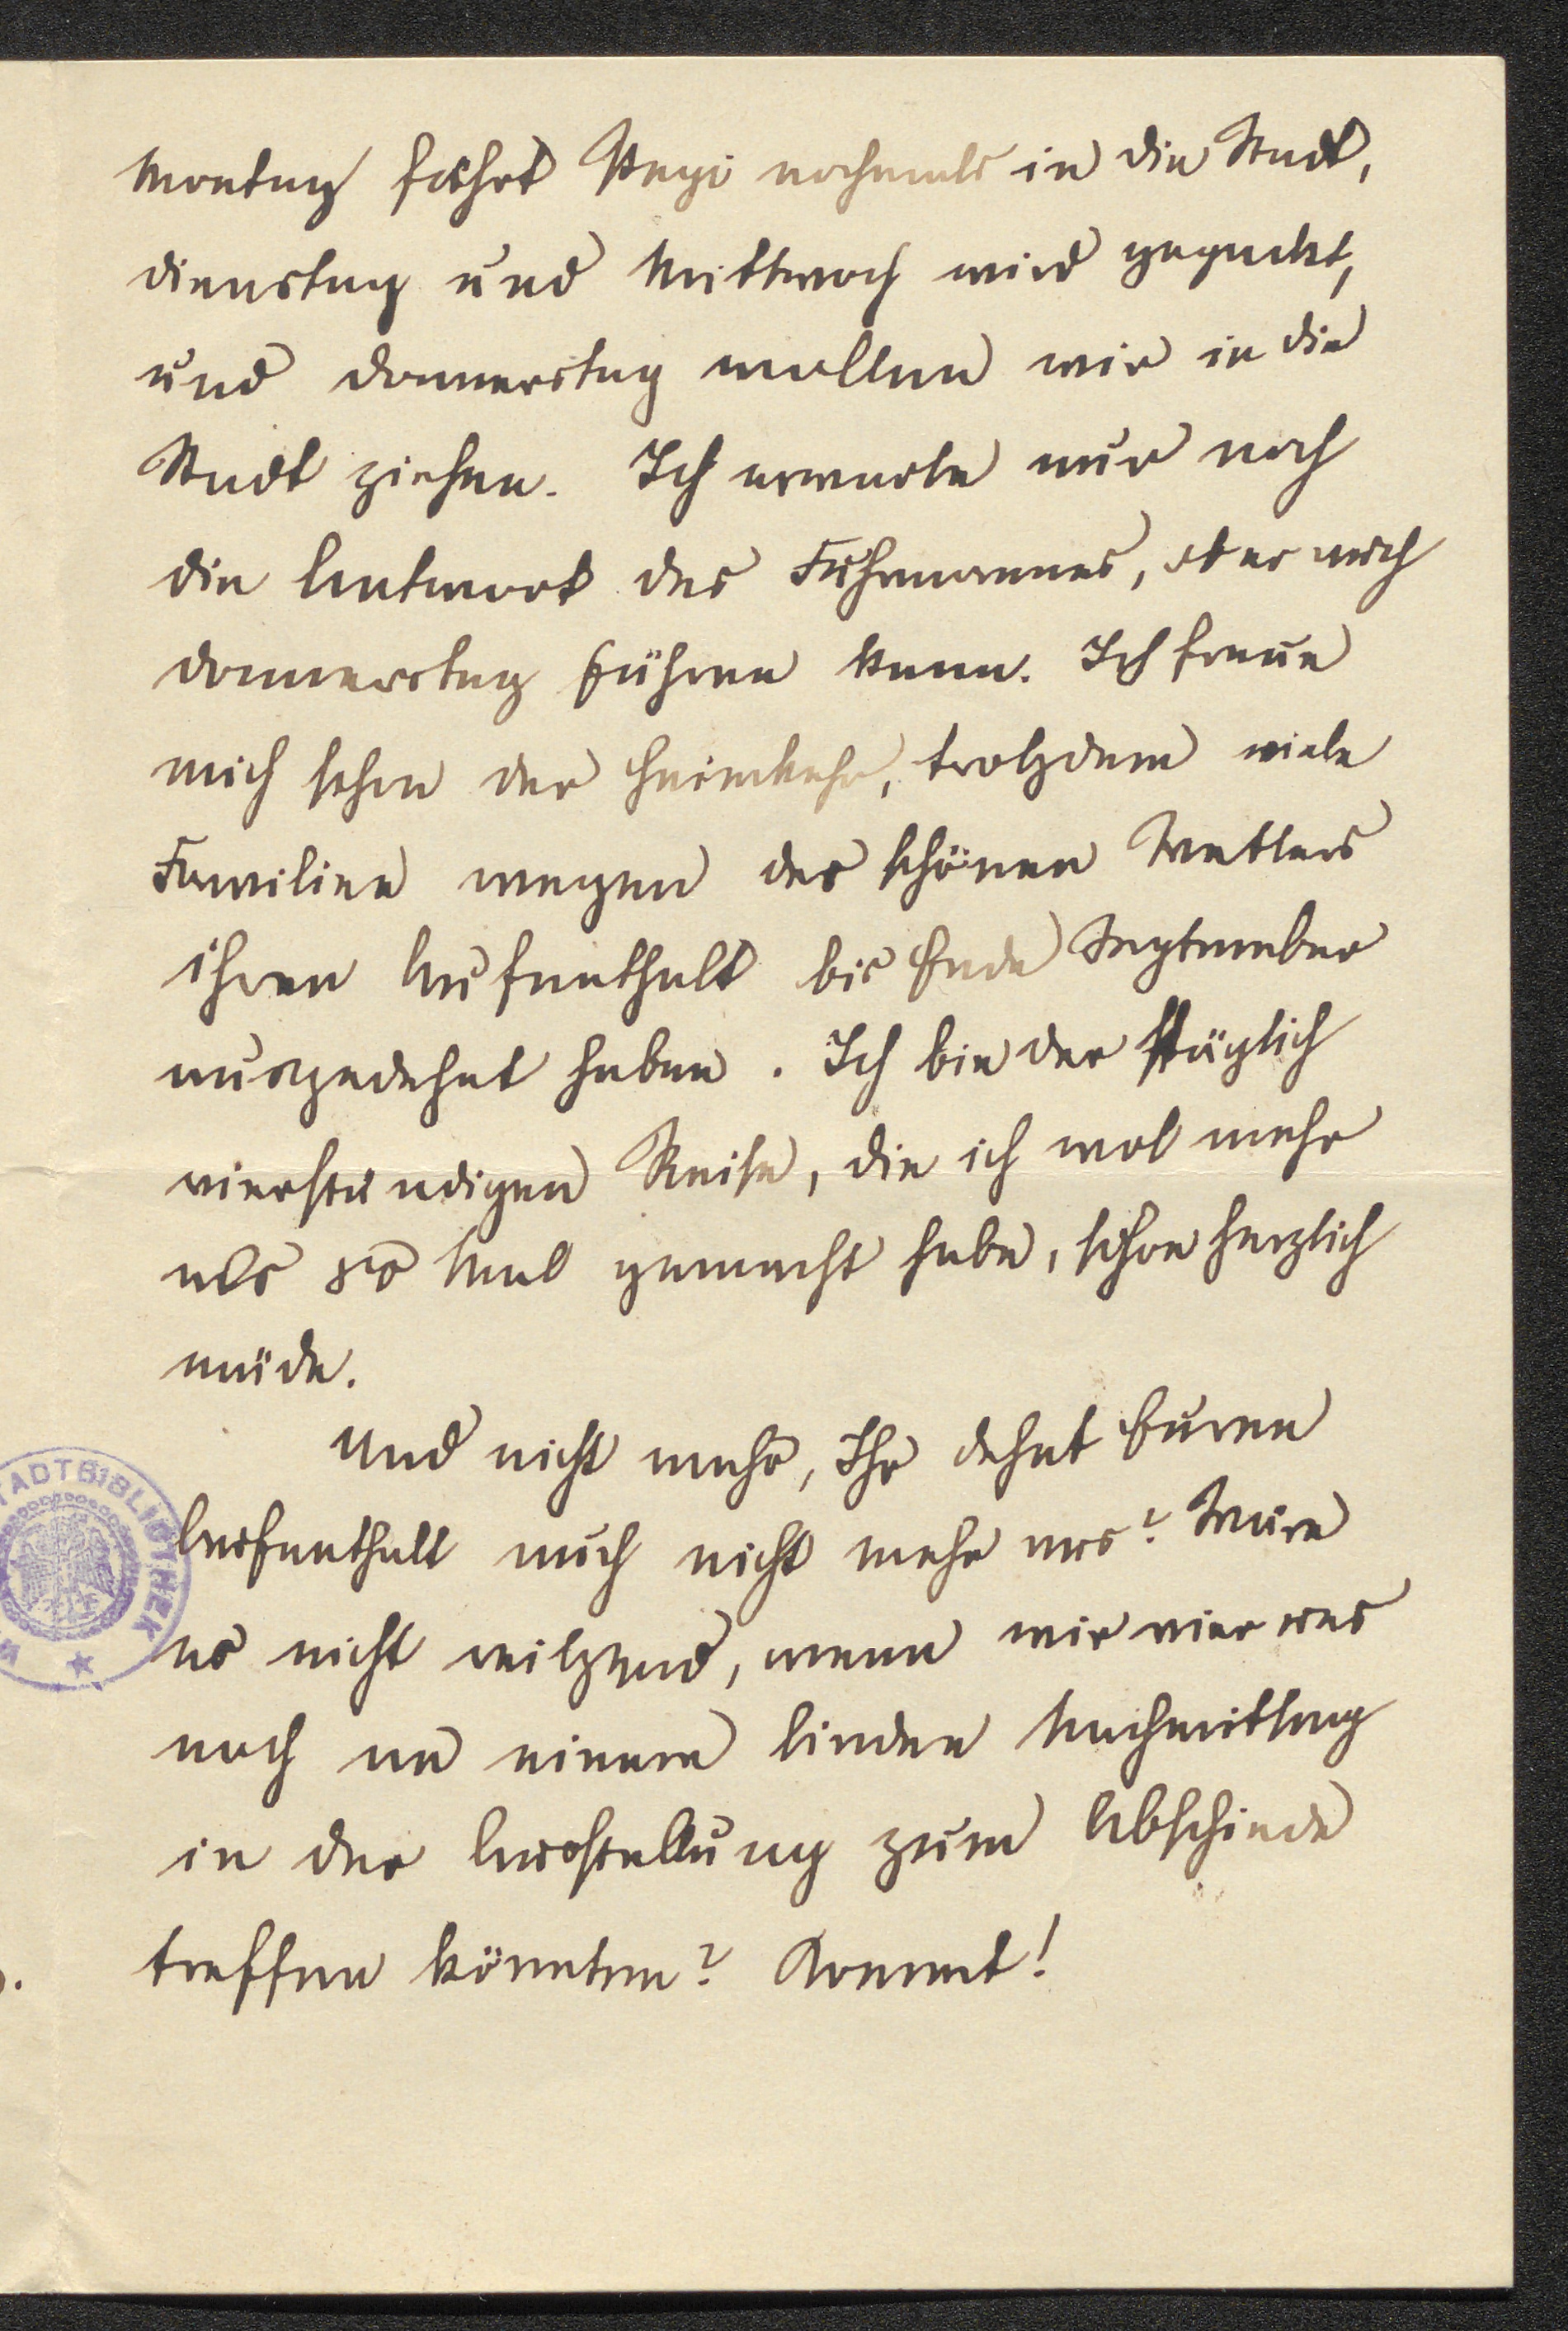 Montag fährt Pepi nochmals in die Stadt,
Dienstag und Mittwoch wird gepackt,
und Donnerstag wollen wir in die
Stadt ziehen. Ich erwarte nur noch
die Antwort des Fuhrmannes, ob er auch
Donnerstag führen kann. Ich freue
mich schon der Heimkehr, trotzdem viele
Familien wegen des schönen Wetters
ihren Aufenthalt bis Ende September
ausgedehnt haben. Ich bin der täglich
vierstündigen Reise, die ich wol mehr
als 80 Mal gemacht habe, schon herzlich
müde.
Und nicht wahr, Ihr dehnt Euren
Aufenthalt auch nicht mehr aus? Wäre
es nicht reitzend, wenn wir vier uns
noch an einem linden Nachmittag
in der Ausstellung zum Abschiede
treffen könnten? Kommt!
STADTBIBLIOTHEK